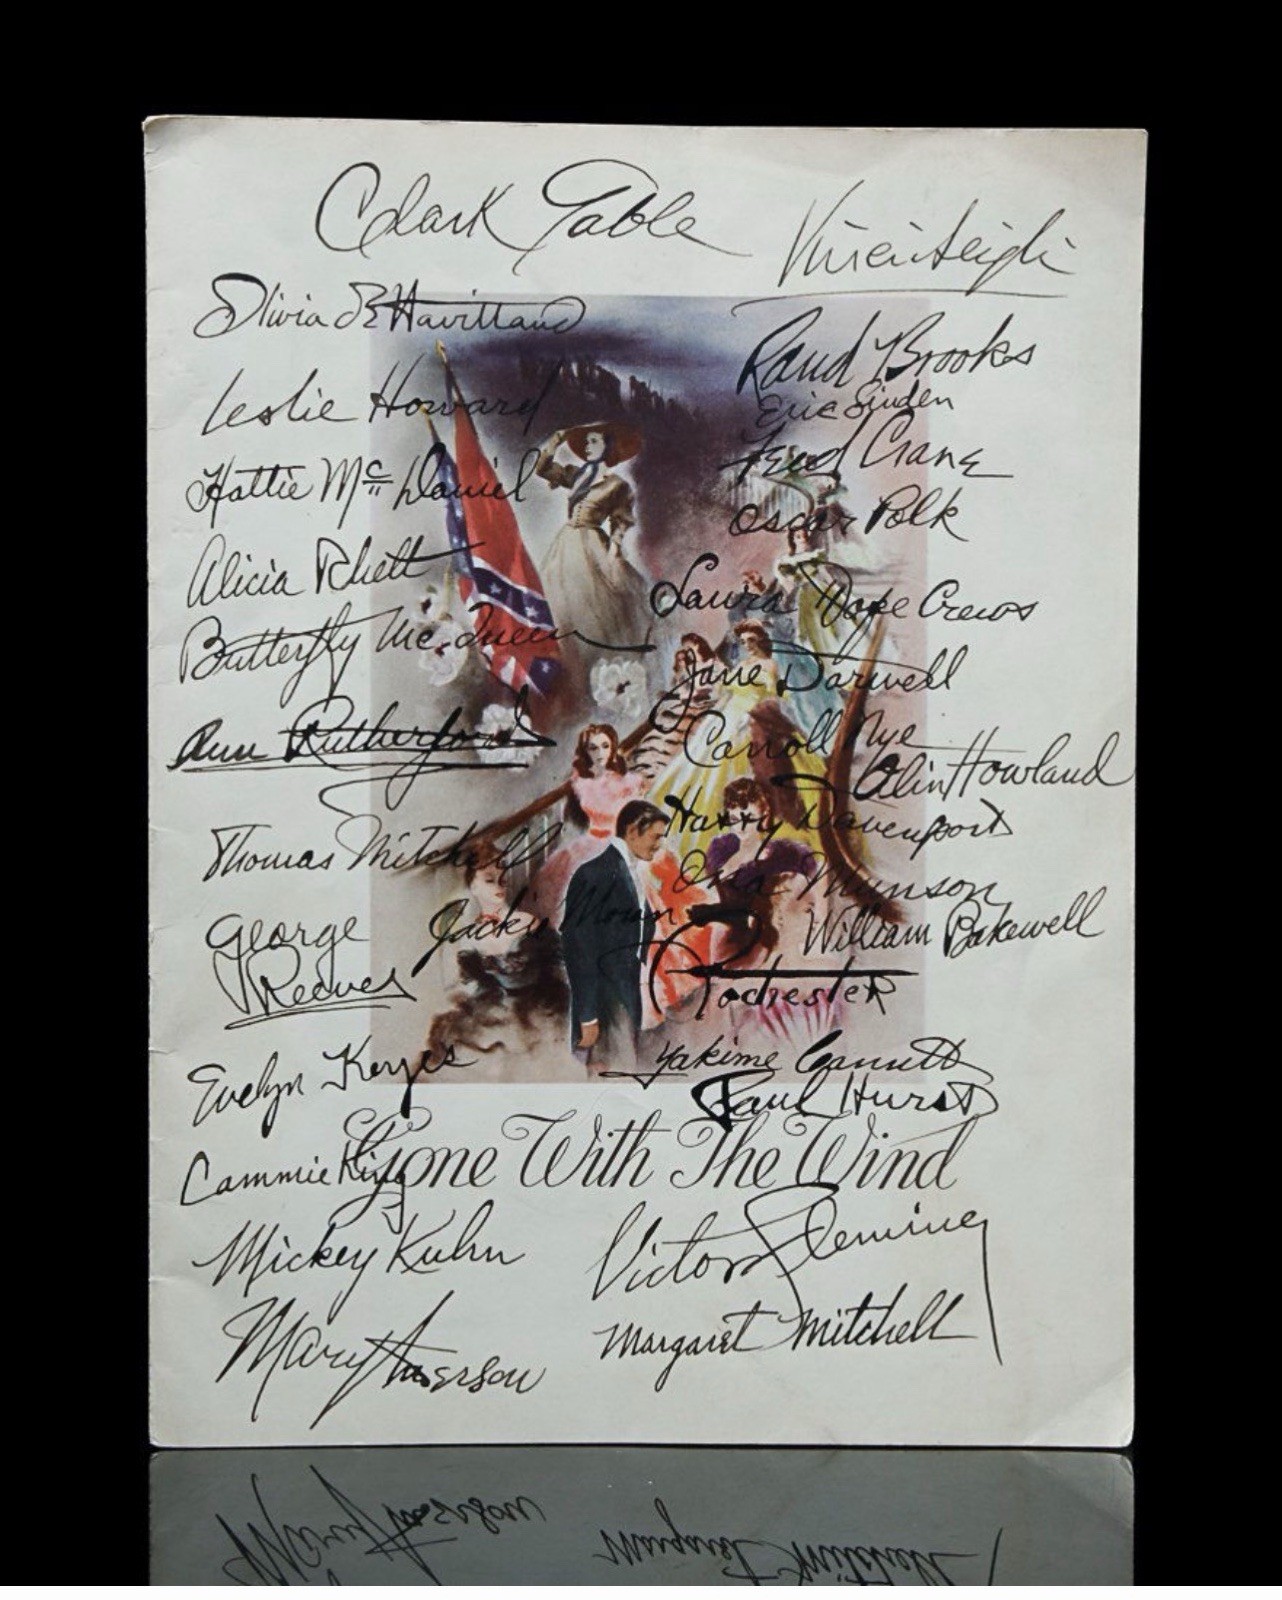 Clark Gable
Vivien Leigh
Olivia de Havilland
Leslie Howard
Hattie McDaniel
Alicia Rhett
Butterfly McQueen
Ann Rutherford
Thomas Mitchell
George
Reeves
Evelyn Keyes
Cammie King
Mickey Kuhn
Mary Anderson
Rand Brooks
Eric Linden
Fred Crane
Oscar Polk
Laura Hope Crews
Jane Darwell
Carroll Nye
Olin Howland
Harry Davenport
Ona Munson
Jackie Moran
William Bakewell
Rochester
Yakima Canutt
Paul Hurst
Gone With The Wind
Victor Fleming
Margaret Mitchell